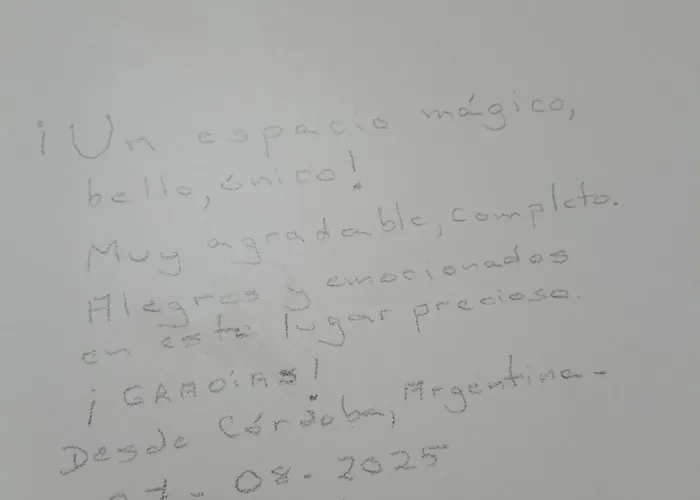 ¡Un espacio mágico,
bello, único!
Muy agradable, completo.
Alegres y emocionados
en este lugar precioso.
¡GRACIAS!
Desde Córdoba, Argentina-
07-08-2025